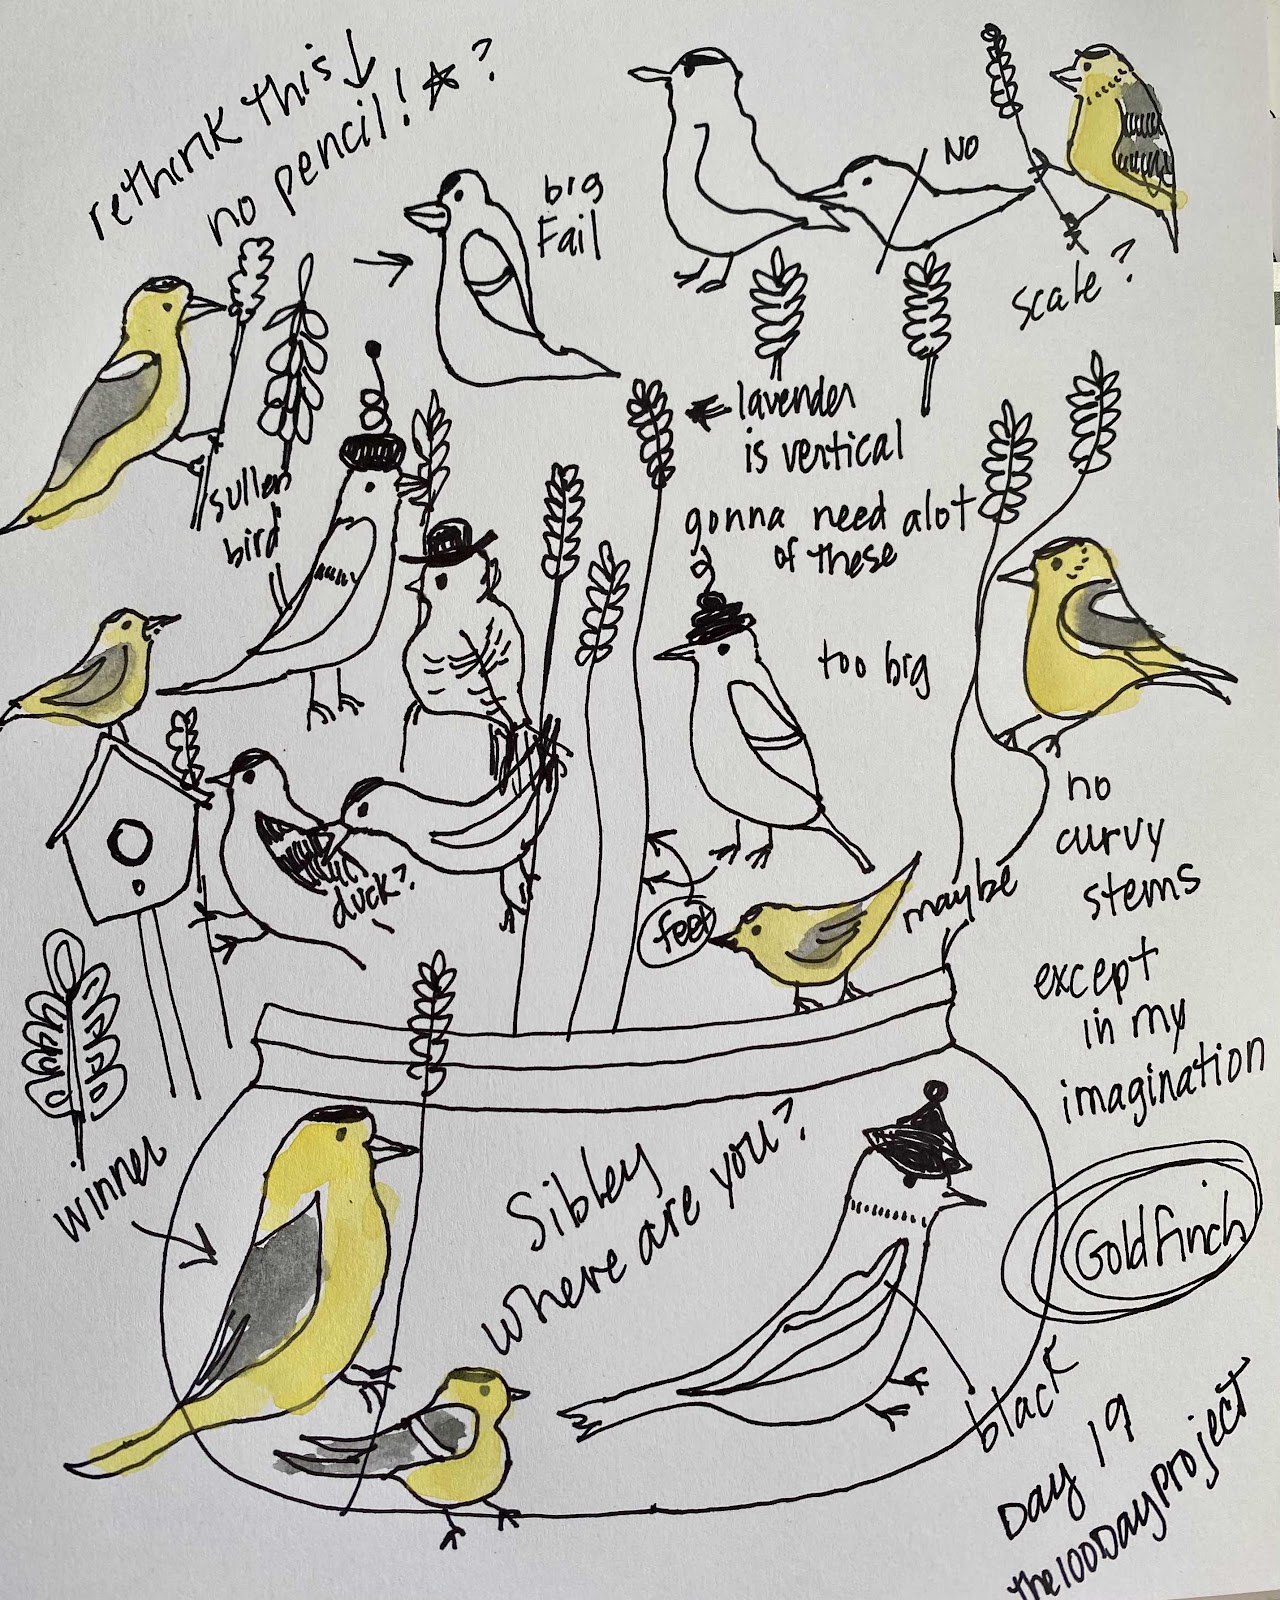 rethink this
no pencil! ?
big
Fail
NO
scale?
lavender
is vertical
gonna need alot
of these
sullen
bird
too big
duck?
feet
maybe
no
curvy
stems
except
in my
imagination
winner
Sibley
where are you?
Goldfinch
black
Day 19
the100DayProject